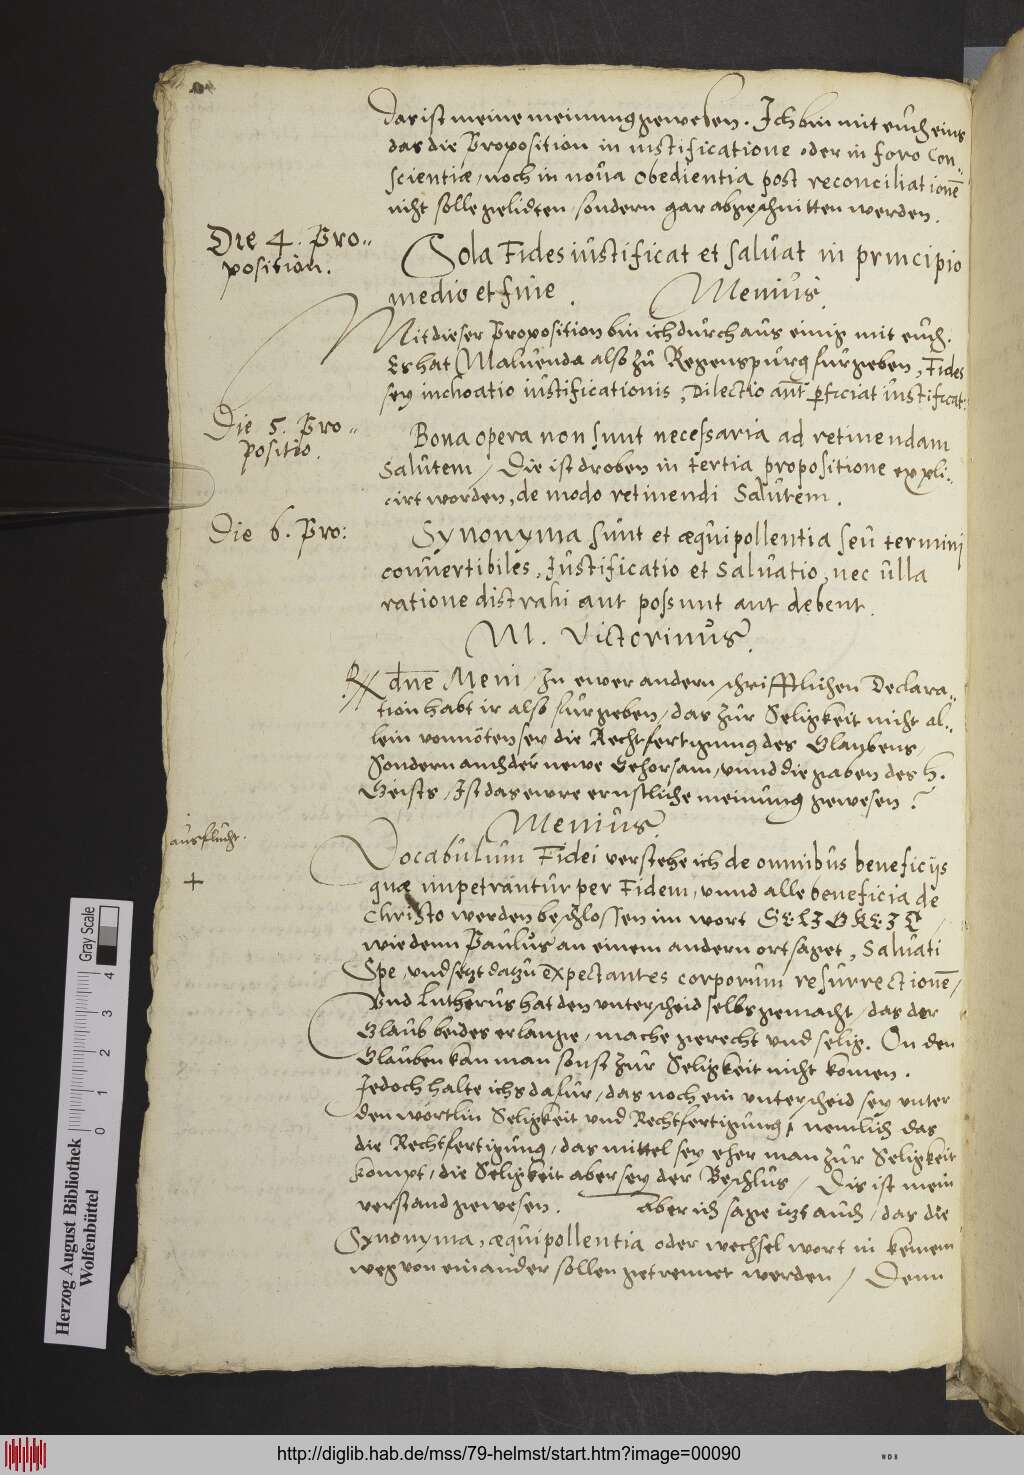 das ist meine meinung gewesen. Ich bin mit euch eins
das die Proposition in iustificatione oder in foro Con
scientiæ, noch in noua obedientia post reconciliationē
nicht solle gelidten, sondern gar abgeschnitten werden.
Die 4. Pro„
position.
Sola Fides iustificat et saluat in principio
medio et fine.
Menius.
Mit dieser Proposition bin ich durchaus einig mit euch.
Es hat Maluenda also zu Regenspurg furgeben, Fides
sey inchoatio iustificationis, Dilectio aut̄ ꝑficiat iustificat:
Die 5. Pro„
positio.
Bona opera non sunt necessaria ad retinendam
Salutem, Die ist droben in tertia propositione expli„
cirt worden, de modo retinendi Salutem.
Die 6. Pro:
Synonyma sunt et æquipollentia seu termini
conuertibiles, Iustificatio et Saluatio, nec ulla
ratione distrahi aut possunt aut debent.
M. Victorinus.
dn̄e Meni, In ewer andern schrifftlichen Declara„
tion habt ir also furgeben, das zur Seligkeit nicht al„
lein vonnöten sey die Rechtfertigung des Glaubens,
Sondern auch der newe Gehorsam, vnnd die gaben des H.
Geists, Ist das ewre ernstliche meinung gewesen?
Menius.
ausflucht.
+
Vocabulum Fidei verstehe ich de omnibus beneficijs
quæ impetrantur per Fidem, vnnd alle beneficia de
Christo werden beschlossen im wort SELIGKEIT,
wie denn Paulus an einem andern ort saget, Saluati
Spe, vnd setzt dazu expectantes corporum resurrectionē,
Vnd Lutherus hat den vnterscheid selbs gemacht, das der
Glaub beides erlange, mache gerecht vnd selig. On den
Glauben kan man sonst zur Seligkeit nicht komen.
Jedoch halte ichs dafur, das noch ein vnterscheid sey vnter
den wörtlin Seligkeit vnd Rechtfertigung, nemlich das
die Rechtfertigung, das mittel sey eher man zur Seligkeit
kompt, die Seligkeit aber sey der Beschlus, Dis ist mein
verstand gewesen. Aber ich sage itzt auch, das die
Synonyma, æquipollentia oder wechsel wort in keinem
weg von einander sollen getrennet werden, Denn
Herzog August Bibliothek
Wolfenbüttel
Gray Scale
0 1 2 3 4
http://diglib.hab.de/mss/79-helmst/start.htm?image=00090